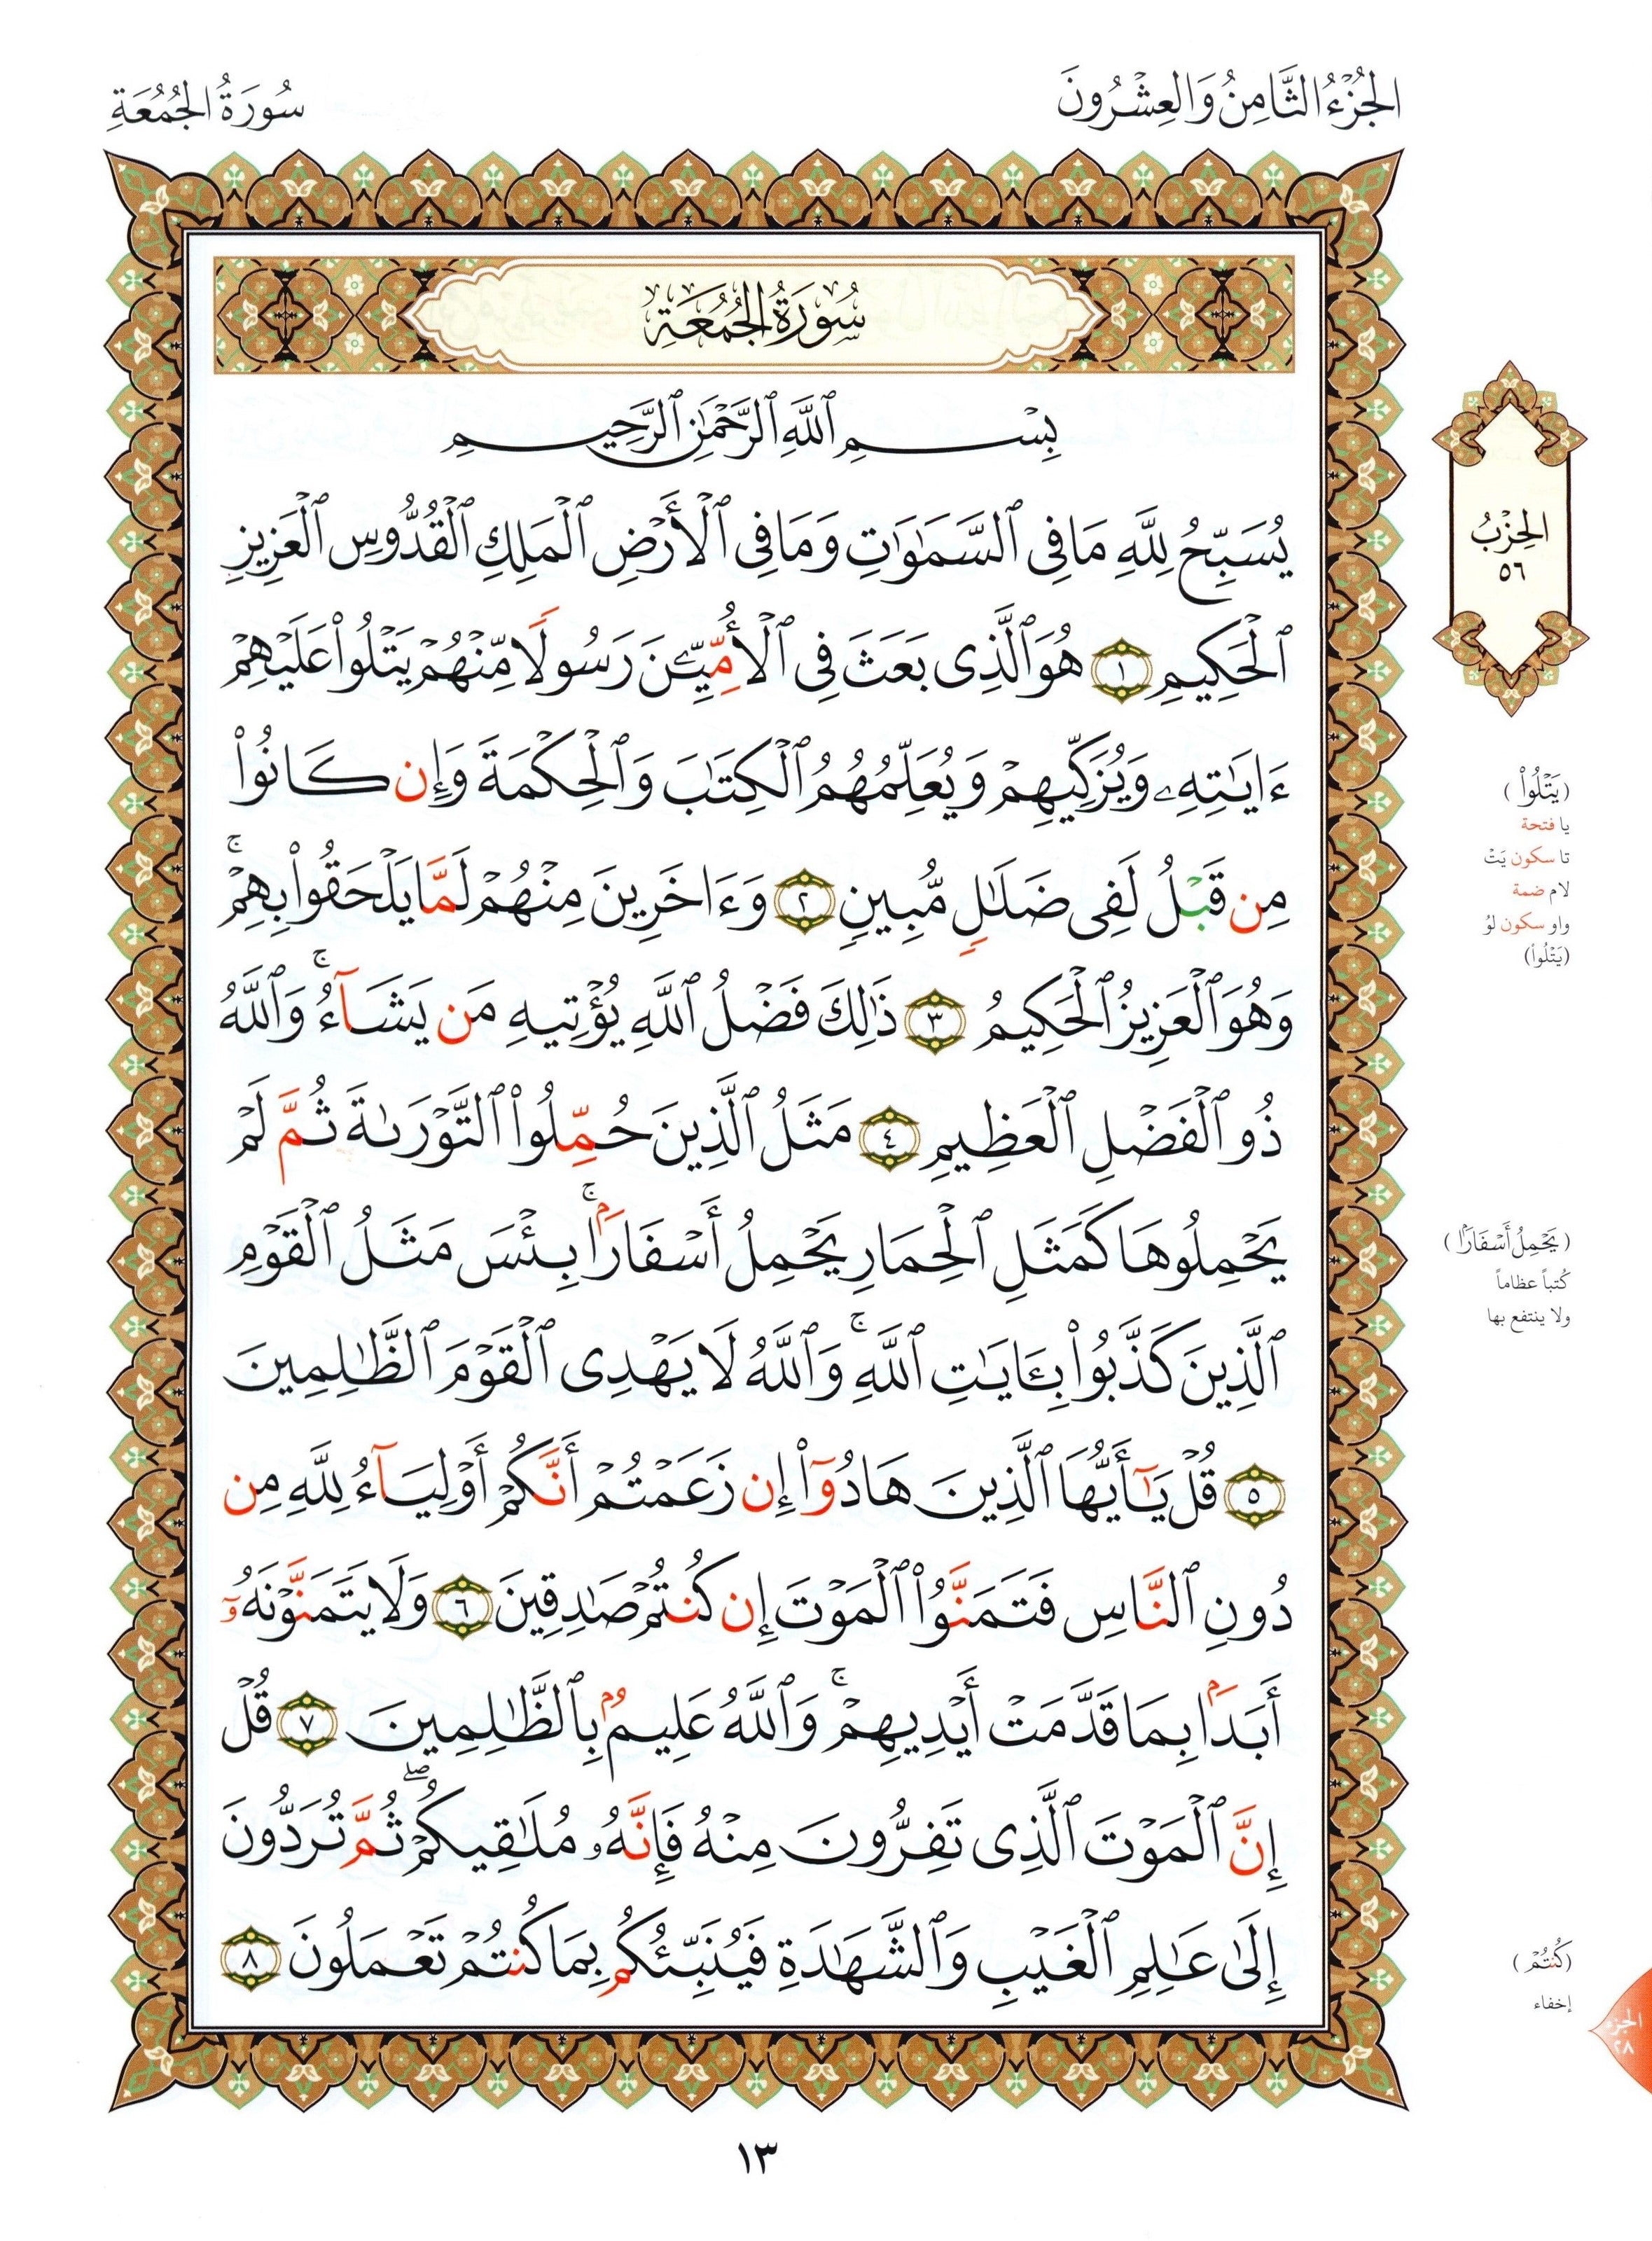 الجُزْءُ الثَّامِنُ وَالعِشْرُونَ
سُورَةُ الجُمُعَةِ
سُورَةُ الجُمُعَةِ
بِسْمِ ٱللَّهِ ٱلرَّحْمَٰنِ ٱلرَّحِيمِ
يُسَبِّحُ لِلَّهِ مَا فِى ٱلسَّمَٰوَٰتِ وَمَا فِى ٱلْأَرْضِ ٱلْمَلِكِ ٱلْقُدُّوسِ ٱلْعَزِيزِ
ٱلْحَكِيمِ ١ هُوَ ٱلَّذِى بَعَثَ فِى ٱلْأُمِّيِّـۧنَ رَسُولًا مِّنْهُمْ يَتْلُوا۟ عَلَيْهِمْ
ءَايَٰتِهِۦ وَيُزَكِّيهِمْ وَيُعَلِّمُهُمُ ٱلْكِتَٰبَ وَٱلْحِكْمَةَ وَإِن كَانُوا۟
مِن قَبْلُ لَفِى ضَلَٰلٍ مُّبِينٍ ٢ وَءَاخَرِينَ مِنْهُمْ لَمَّا يَلْحَقُوا۟ بِهِمْ ۚ
وَهُوَ ٱلْعَزِيزُ ٱلْحَكِيمُ ٣ ذَٰلِكَ فَضْلُ ٱللَّهِ يُؤْتِيهِ مَن يَشَآءُ ۚ وَٱللَّهُ
ذُو ٱلْفَضْلِ ٱلْعَظِيمِ ٤ مَثَلُ ٱلَّذِينَ حُمِّلُوا۟ ٱلتَّوْرَىٰةَ ثُمَّ لَمْ
يَحْمِلُوهَا كَمَثَلِ ٱلْحِمَارِ يَحْمِلُ أَسْفَارًۢا ۚ بِئْسَ مَثَلُ ٱلْقَوْمِ
ٱلَّذِينَ كَذَّبُوا۟ بِـَٔايَٰتِ ٱللَّهِ ۚ وَٱللَّهُ لَا يَهْدِى ٱلْقَوْمَ ٱلظَّٰلِمِينَ
٥ قُلْ يَٰٓأَيُّهَا ٱلَّذِينَ هَادُوٓا۟ إِن زَعَمْتُمْ أَنَّكُمْ أَوْلِيَآءُ لِلَّهِ مِن
دُونِ ٱلنَّاسِ فَتَمَنَّوُا۟ ٱلْمَوْتَ إِن كُنتُمْ صَٰدِقِينَ ٦ وَلَا يَتَمَنَّوْنَهُۥٓ
أَبَدًۢا بِمَا قَدَّمَتْ أَيْدِيهِمْ ۚ وَٱللَّهُ عَلِيمٌۢ بِٱلظَّٰلِمِينَ ٧ قُلْ
إِنَّ ٱلْمَوْتَ ٱلَّذِى تَفِرُّونَ مِنْهُ فَإِنَّهُۥ مُلَٰقِيكُمْ ۖ ثُمَّ تُرَدُّونَ
إِلَىٰ عَٰلِمِ ٱلْغَيْبِ وَٱلشَّهَٰدَةِ فَيُنَبِّئُكُم بِمَا كُنتُمْ تَعْمَلُونَ ٨
الحِزْبُ
٥٦
(يَتْلُوا۟)
يا فتحة
تا سكون يَتْ
لام ضمة
واو سكون لُوْ
(يَتْلُوا۟)
(يَحْمِلُ أَسْفَارًۢا)
كُتباً عظاماً
ولا ينتفع بها
(كُنتُمْ)
إخفاء
الجزء
٢٨
١٣